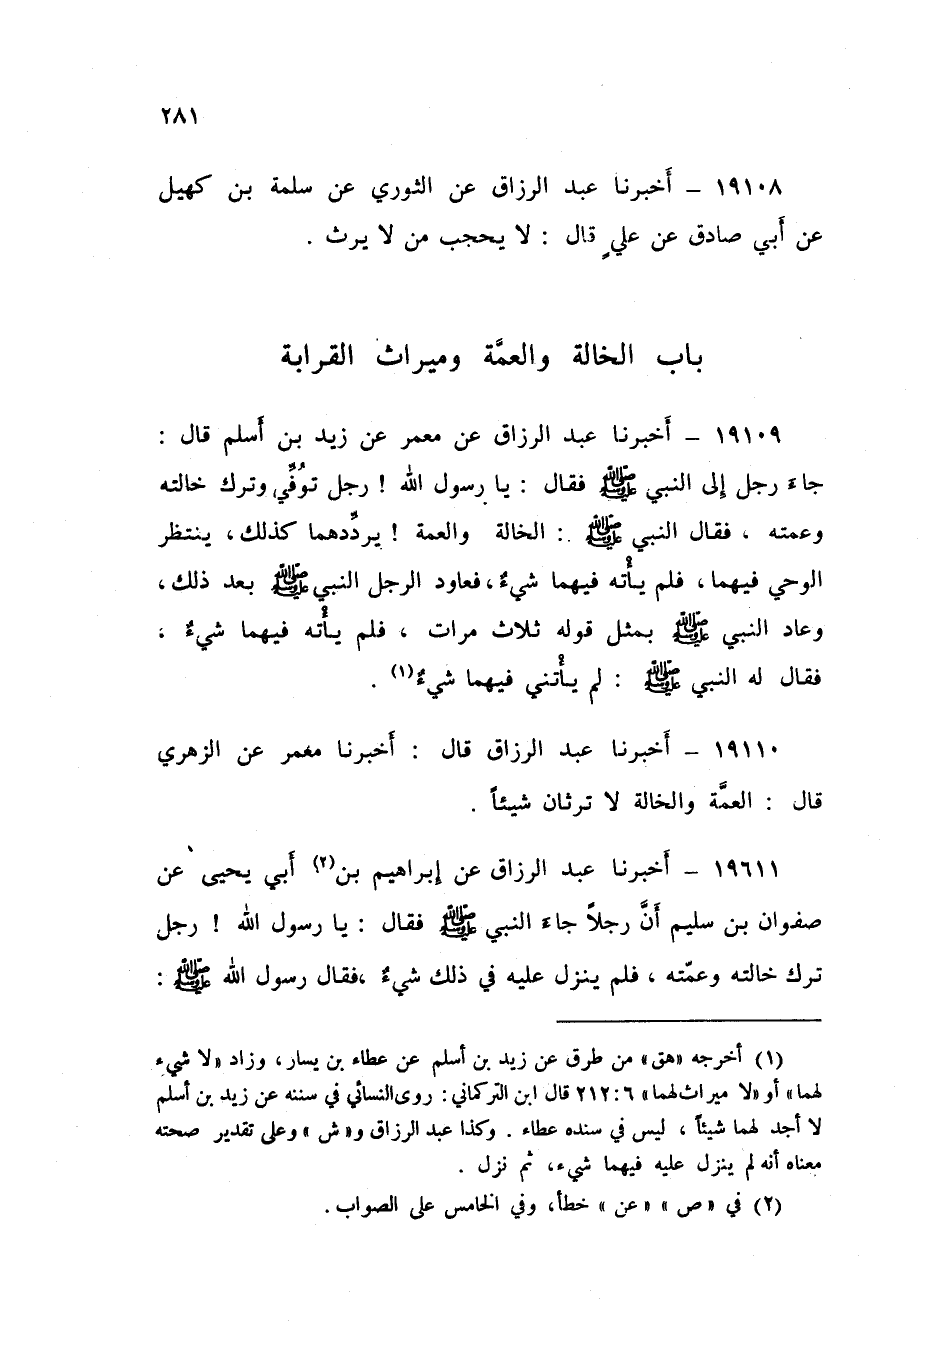 ٢٨١
١٩١٠٨ – أَخبرنا عبد الرزاق عن الثوري عن سلمة بن كهيل
عن أَبي صادق عن عليٍ قال : لا يحجب من لا يرث .
باب الخالة والعمَّة وميراث القرابة
١٩١٠٩ – أَخبرنا عبد الرزاق عن معمر عن زيد بن أَسلم قال :
جاءَ رجل إلى النبي ﷺ فقال : يا رسول الله ! رجل توُفِّي وترك خالته
وعمته ، فقال النبي ﷺ : الخالة والعمة ! يردِّدهما كذلك ، ينتظر
الوحي فيهما ، فلم يأْته فيهما شيءٌ ، فعاود الرجل النبي ﷺ بعد ذلك ،
وعاد النبي ﷺ بمثل قوله ثلاث مرات ، فلم يأْته فيهما شيءٌ ،
فقال له النبي ﷺ : لم يأْتني فيهما شيءٌ(١) .
١٩١١٠ – أَخبرنا عبد الرزاق قال : أَخبرنا معمر عن الزهري
قال : العمَّة والخالة لا ترثان شيئاً .
١٩٦١١ – أَخبرنا عبد الرزاق عن إبراهيم بن(٢) أَبي يحيى عن
صفوان بن سليم أَنَّ رجلاً جاءَ النبي ﷺ فقال : يا رسول الله ! رجل
ترك خالته وعمّته ، فلم ينزل عليه في ذلك شيءٌ ،فقال رسول الله ﷺ :
(١) أخرجه «هق» من طرق عن زيد بن أسلم عن عطاء بن يسار ، وزاد «لا شيء
لهما» أو «لا ميراث لهما» ٢١٢:٦ قال ابن التركماني : روى النسائي في سننه عن زيد بن أسلم
لا أجد لهما شيئاً ، ليس في سنده عطاء . وكذا عبد الرزاق و«ش» وعلى تقدير صحته
معناه أنه لم ينزل عليه فيهما شيء، ثم نزل .
(٢) في «ص» «عن» خطأ، وفي الخامس على الصواب .